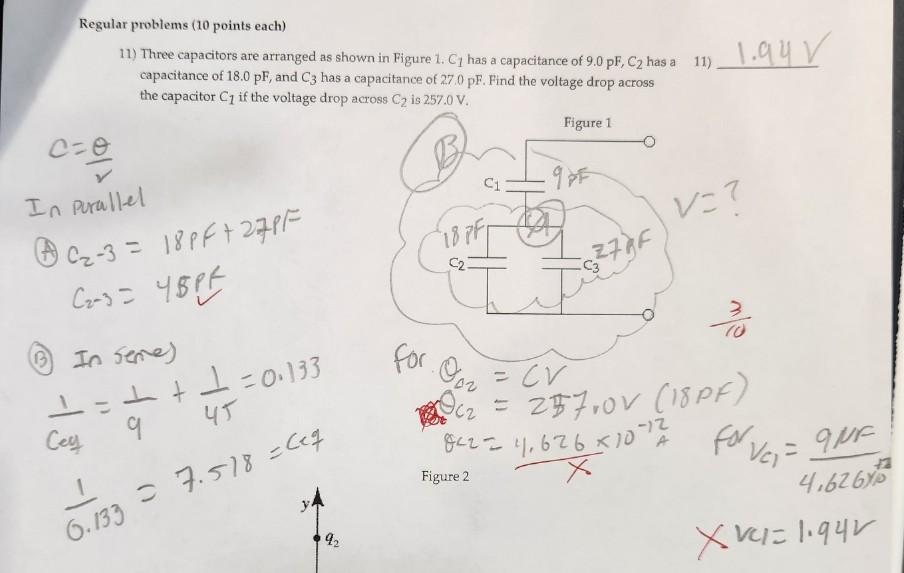 Regular problems (10 points each)
11) Three capacitors are arranged as shown in Figure 1. C1 has a capacitance of 9.0 pF, C2 has a
capacitance of 18.0 pF, and C3 has a capacitance of 27.0 pF. Find the voltage drop across
the capacitor C1 if the voltage drop across C2 is 257.0 V.
11) 1.94 V
Figure 1
C = Q/V
In parallel
(A) C2-3 = 18PF + 27PF
C2-3 = 45PF
(B) In series
1/Ceq = 1/9 + 1/45 = 0.133
1/0.133 = 7.518 = Ceq
B
C1
9PF
A
18PF
C2
27PF
C3
V = ?
3/10
for QC2 = CV
QC2 = 257.0V (18PF)
QC2 = 4.626 × 10⁻¹²
X
for VC1 = 9PF
X VC1 = 1.94V
Figure 2
y
q2